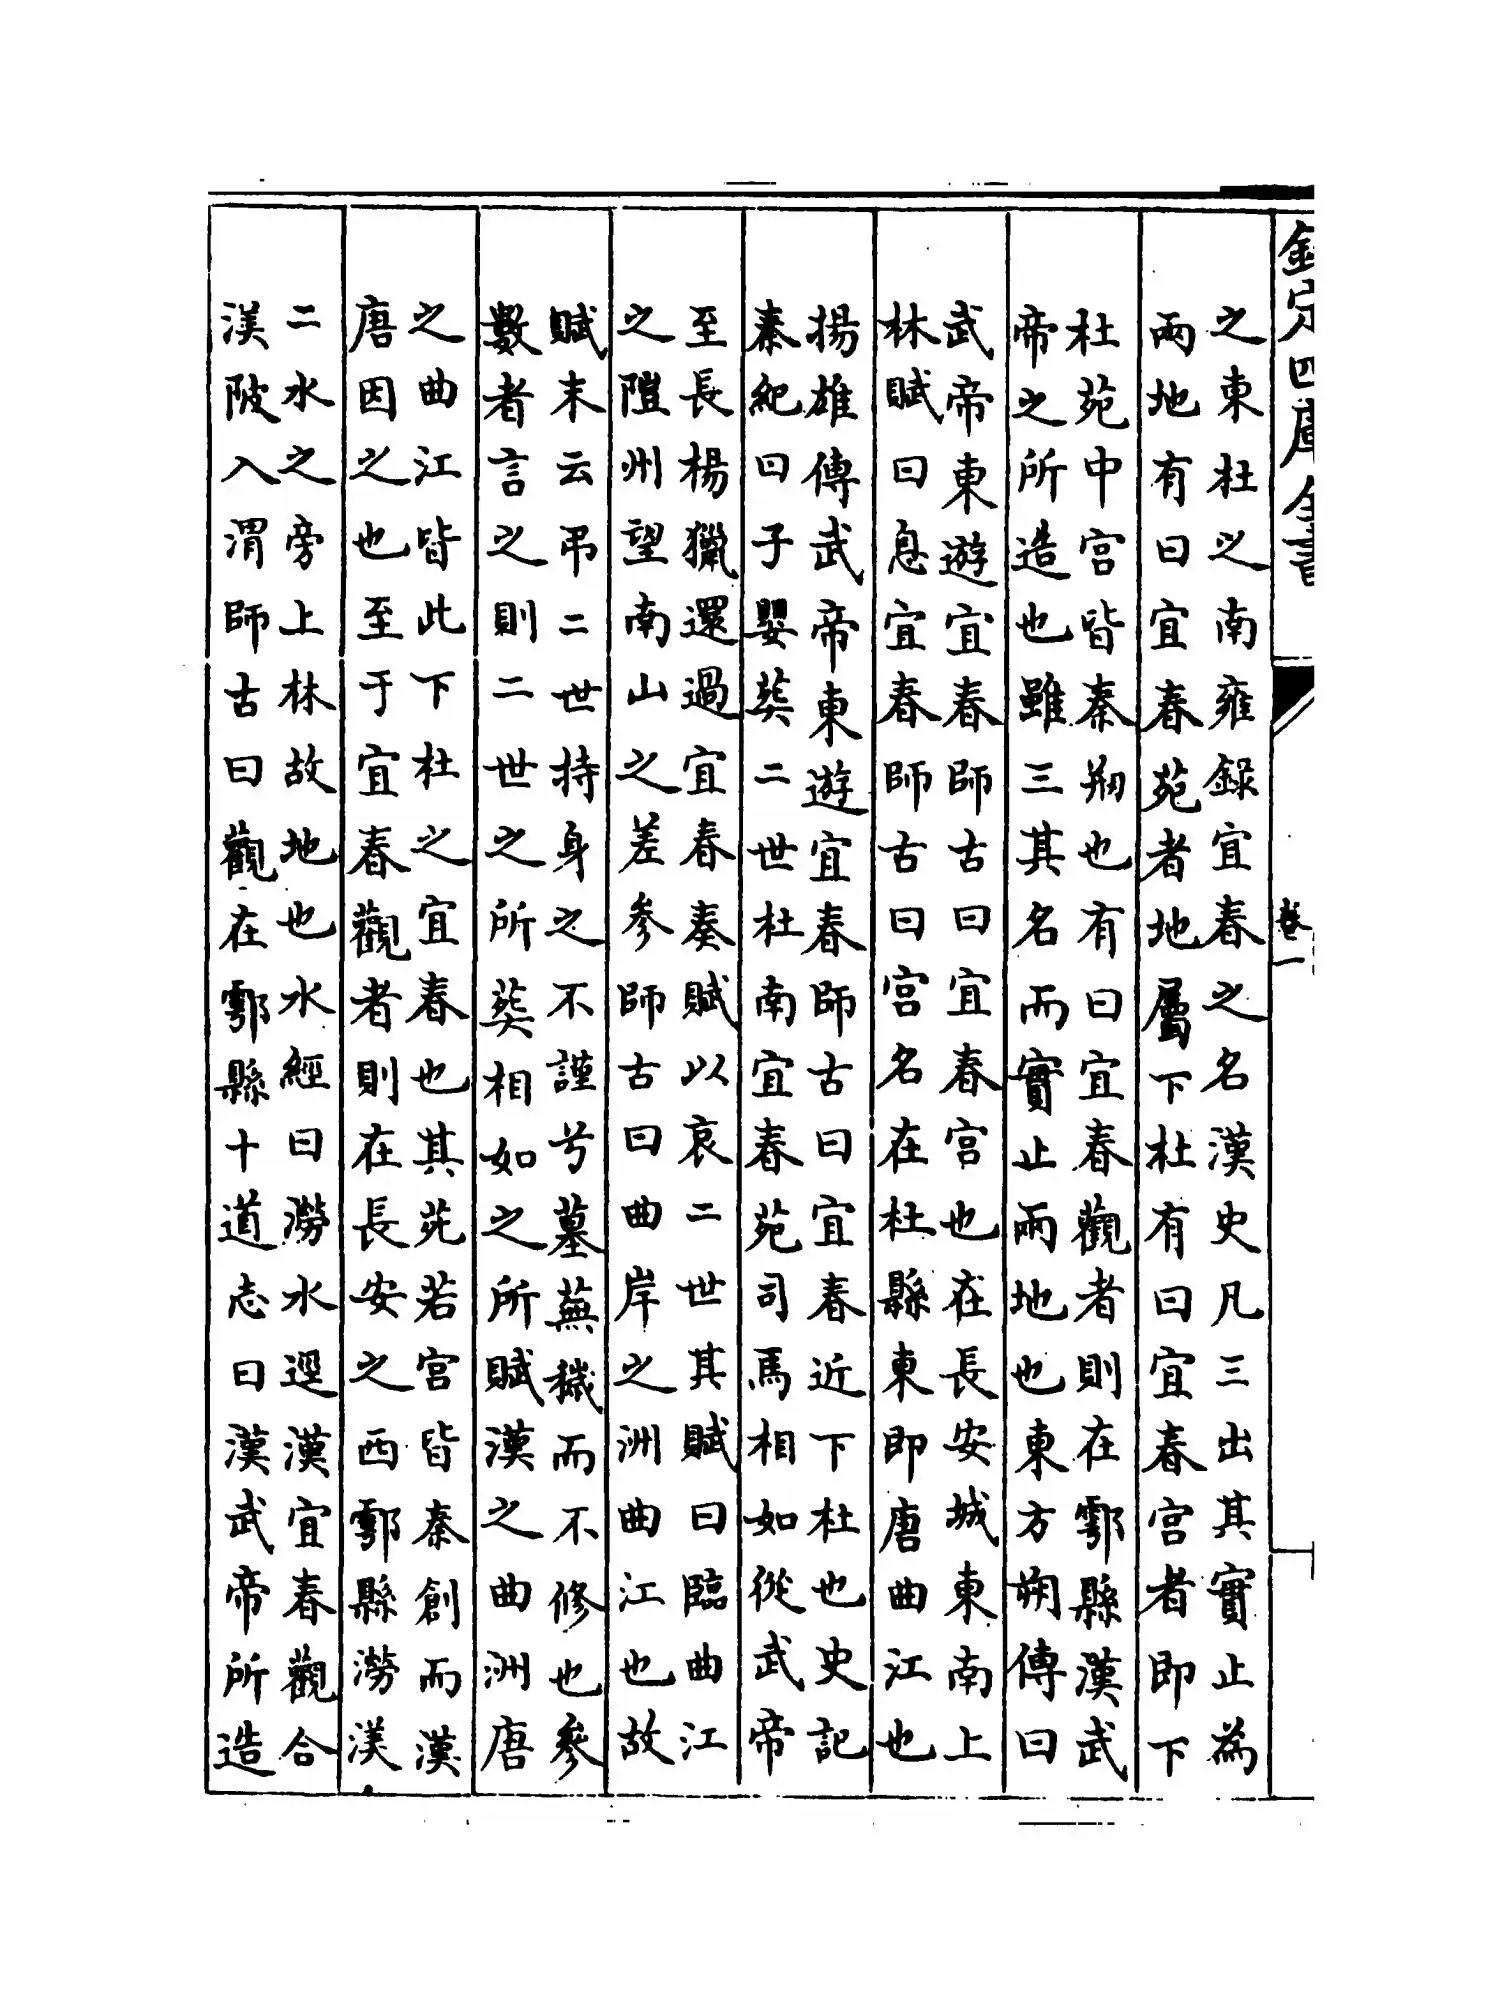 欽定四庫全書
卷一
之東杜之南雍錄宜春之名漢史凡三出其實止為
兩地有曰宜春苑者地屬下杜有曰宜春宮者即下
杜苑中宮皆秦剏也有曰宜春觀者則在鄠縣漢武
帝之所造也雖三其名而實止兩地也東方朔傳曰
武帝東遊宜春師古曰宜春宮也在長安城東南上
林賦曰息宜春師古曰宮名在杜縣東即唐曲江也
揚雄傳武帝東遊宜春師古曰宜春近下杜也史記
秦紀曰子嬰葬二世杜南宜春苑司馬相如從武帝
至長楊獵還過宜春奏賦以哀二世其賦曰臨曲江
之隑州望南山之差參師古曰曲岸之洲曲江也故
賦末云弔二世持身之不謹兮墓蕪穢而不修也參
數者言之則二世之所葬相如之所賦漢之曲洲唐
之曲江皆此下杜之宜春也其苑若宮皆秦創而漢
唐因之也至于宜春觀者則在長安之西鄠縣澇渼
二水之旁上林故地也水經曰澇水逕漢宜春觀合
渼陂入渭師古曰觀在鄠縣十道志曰漢武帝所造